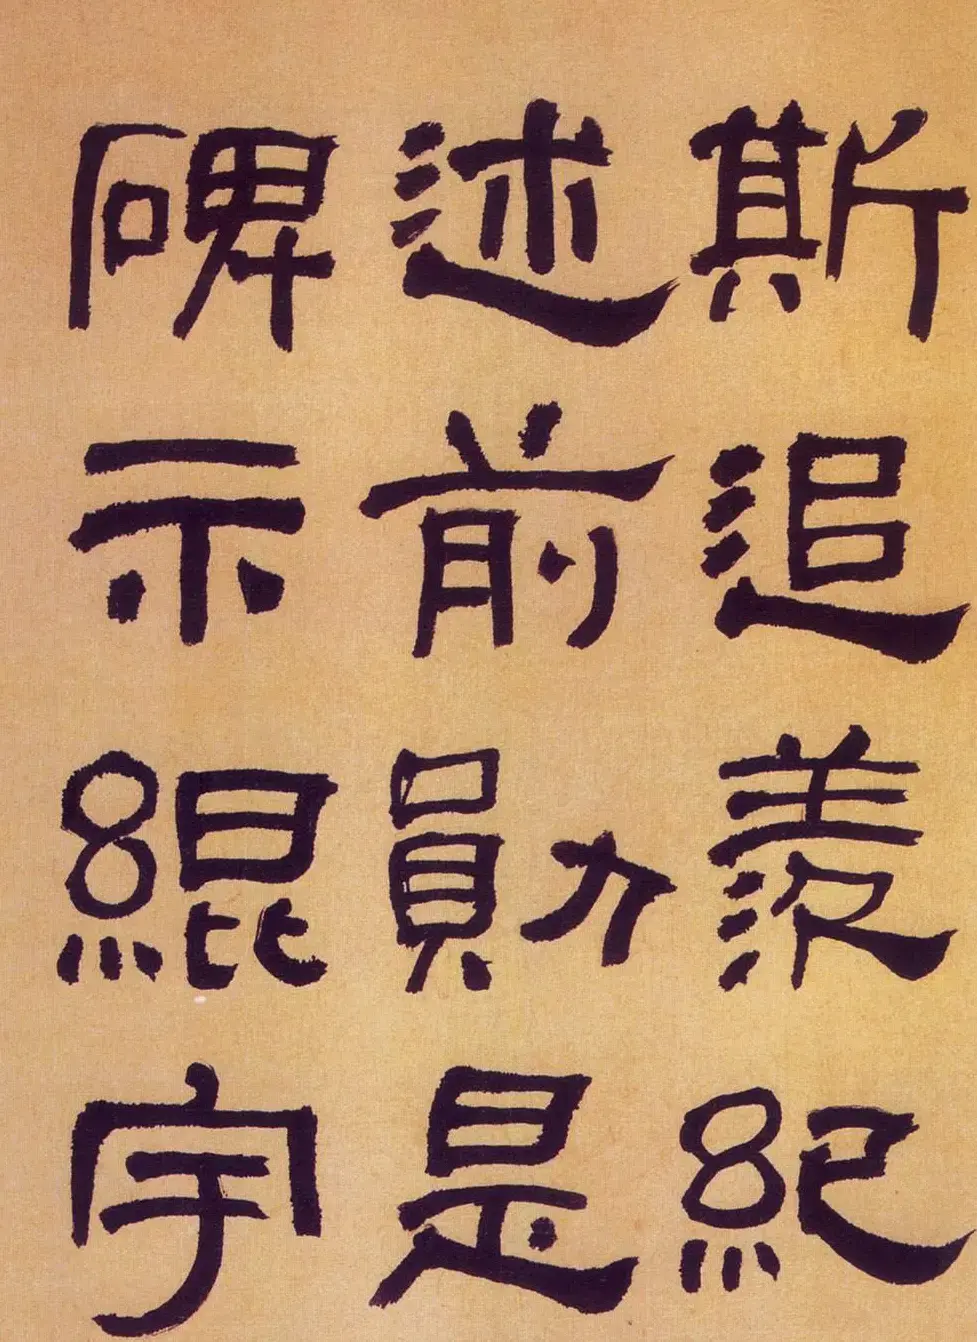 斯追羨紀
述前勛是
碑示緄宇